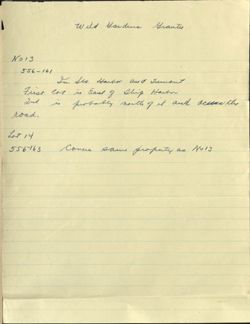 Wild Gardens Grants
No 13
556-161
In S.W. Harbor and Tremont
First lot is East of Ship Harbor
2nd is probably north of it and across the
road.
Lot 14
556-163 Covers same property as No 13